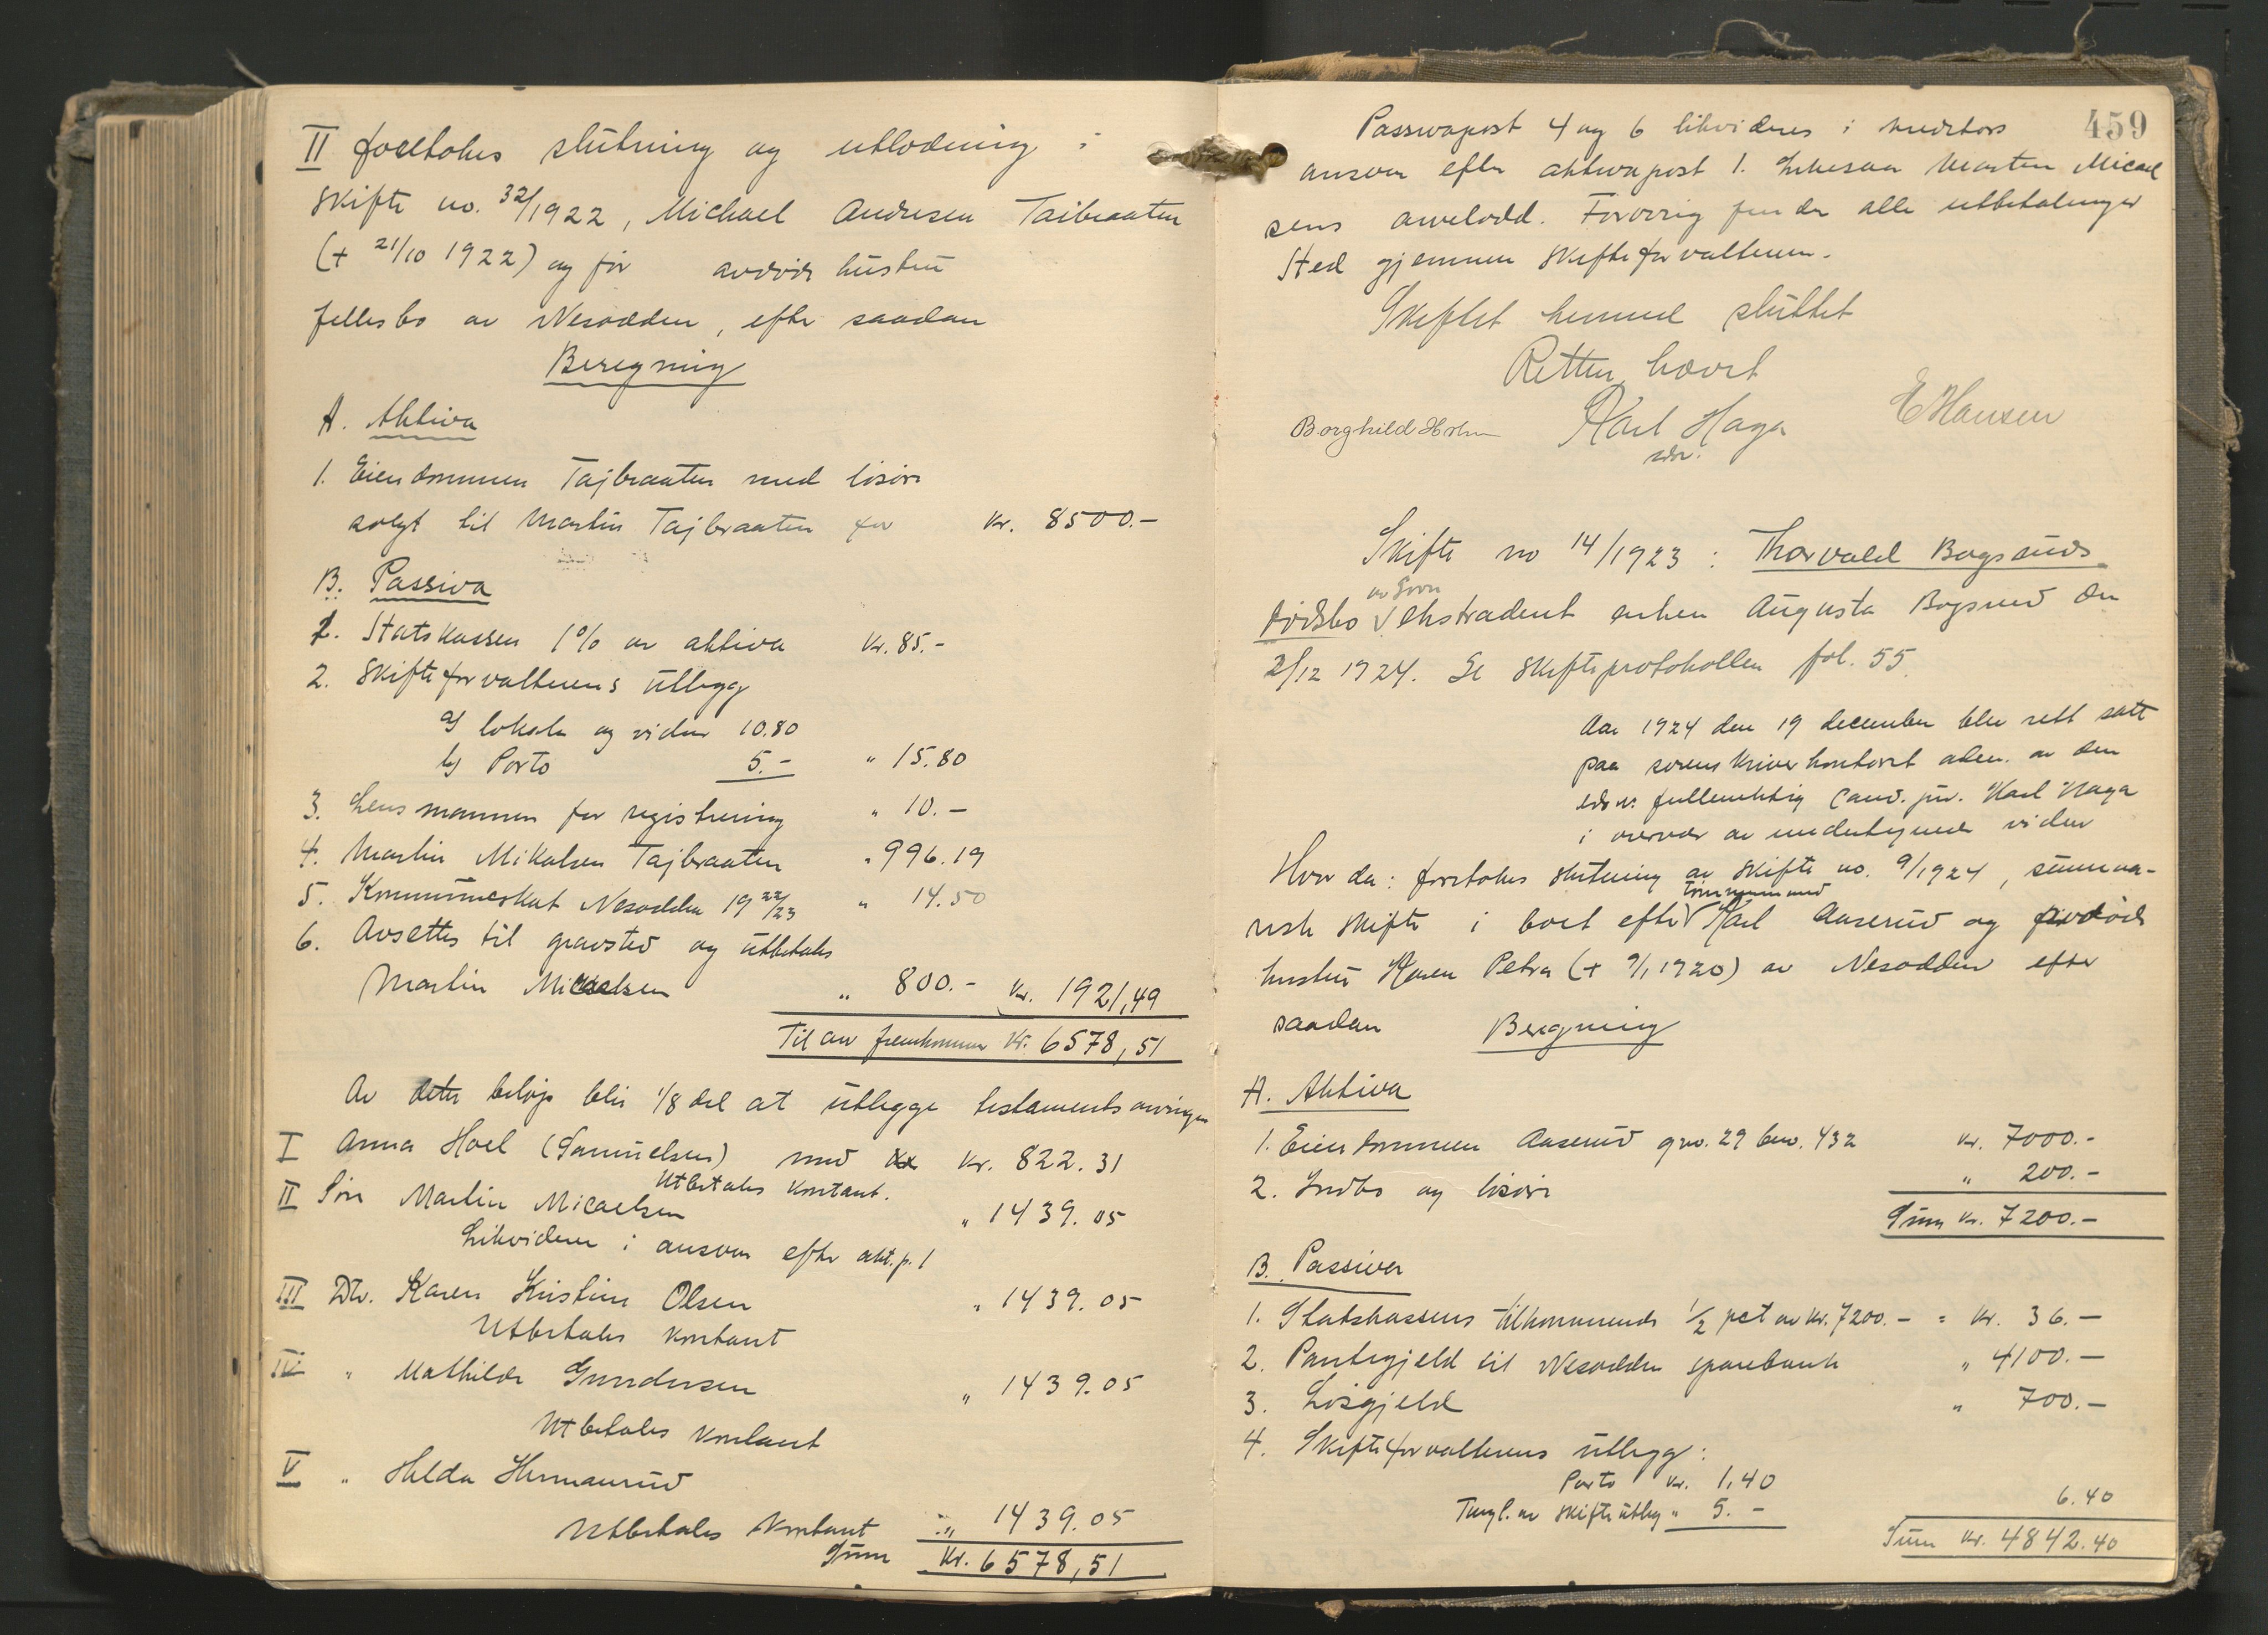 II foretokes slutning og utlodning i
skifte no. 32/1922, Michael Andresen Taibraaten
(+ 21/10 1922) og før avdøde hustru
fellesbo av Nesodden, efter saadan
Beregning
A. Aktiva
1. Eiendommen Tajbraaten med løsøre
solgt til Martin Tajbraaten for kr. 8500.-
B. Passiva
1. Statskassen 1% av aktiva kr. 85.-
2. Skifteforvalterens utlegg
a) lokale og vidner 10.80
b) Porto 5.- " 15.80
3. Lensmannen for registrering " 10.-
4. Martin Mikalsen Tajbraaten " 996.19
5. Kommuneskat Nesodden 1922/23 " 14.50
6. Avsettes til gravsted og utbetales
Martin Micaelsen " 800.- kr. 1921,49
Til arv fremkommer kr. 6578,51
Av dette beløp blir 1/8 del at utlegge testamentsarvingen
I Anna Hoel (Samuelsen) med kr. 822.31
Utbetales kontant.
II Søn Martin Micaelsen " 1439.05
Likvideres i ansvar efter akt.p. 1
III Dtr. Karen Kristine Olsen " 1439.05
Utbetales kontant
IV " Mathilde Gundersen " 1439.05
Utbetales kontant
V " Hilda Hermansrud
Utbetales kontant " 1439.05
Sum kr. 6578,51
459
Passivapost 4 og 6 likvideres i kreditors
ansvar efter aktivapost 1. Likesaa Martin Micael
sens arvelodd. Forøvrig finder alle utbetalinger
sted gjennem skifteforvalteren.
Skiftet hermed sluttet
Retten hævet
Borghild Holm Karl Haga E Hansen
edsv.
Skifte no 14/1923: Thorvald Bogsruds
dødsbo av Grori ekstradert enken Augusta Bogsrud den
2/12 1924. Se skifteprotokollen fol. 55.
Aar 1924 den 19 december blev rett satt
paa sorenskriverkontoret adm. av den
edsv. fullmektig cand. jur. Karl Haga
i overvær av undertegnede vidner
Hvor da: foretokes slutning av skifte no. 9/1924, summa-
risk skifte i boet efter tømmermand Karl Aaserud og avdøde
hustru Karen Petra (+ 9/1 1920) av Nesodden efter
saadan Beregning
A. Aktiva
1. Eiendommen Aaserud gno. 29 bno. 432 kr. 7000.-
2. Indbo og løsøre " 200.-
Sum kr. 7200.-
B. Passiva
1. Statskassens tilkommende 1/2 pct av kr. 7200.- = kr. 36.-
2. Pantegjeld til Nesodden sparebank " 4100.-
3. Løsgjeld " 700.-
4. Skifteforvalterens utlegg:
Porto kr. 1,40
Tingl. av skifteutlegg " 5.- 6.40
Sum kr. 4842.40